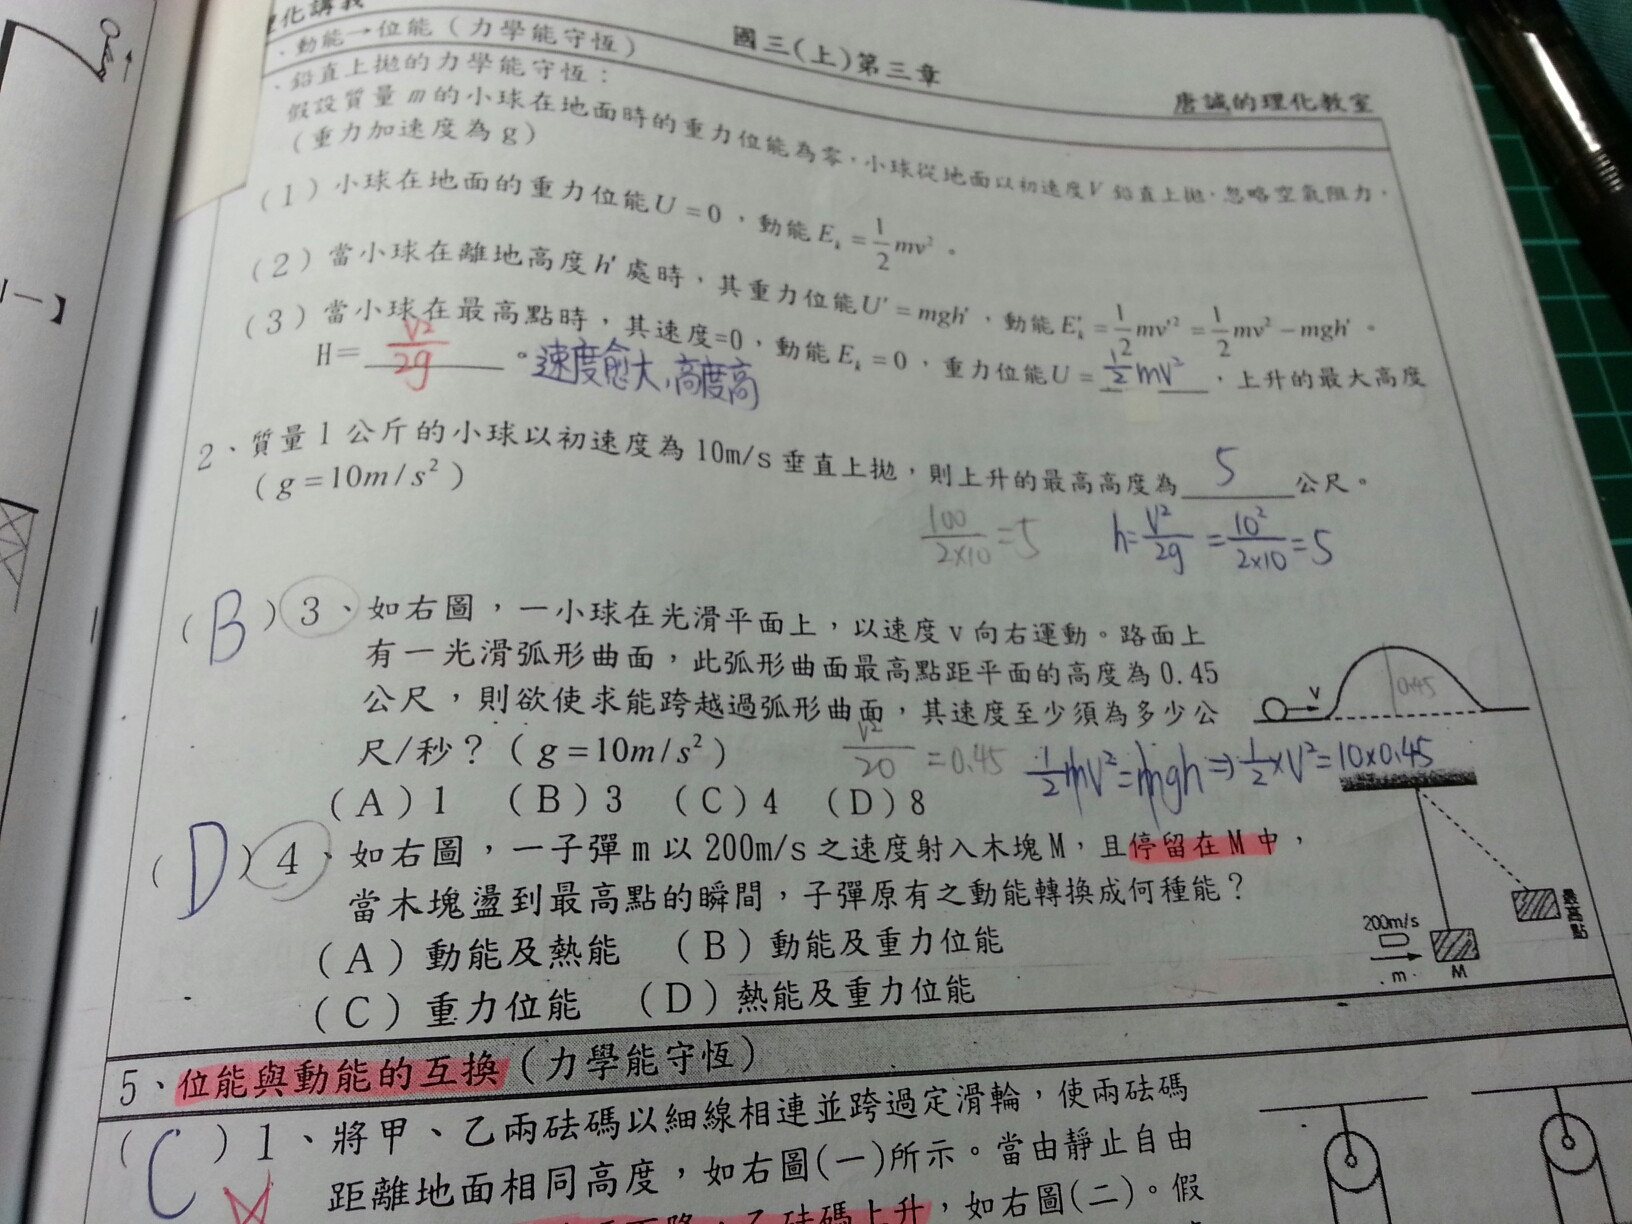 化講義
國三(上)第三章
唐誠的理化教室
、動能→位能(力學能守恆)
、鉛直上拋的力學能守恆：
假設質量m的小球在地面時的重力位能為零，小球從地面以初速度V鉛直上拋，忽略空氣阻力，
(重力加速度為g)
(1)小球在地面的重力位能U=0，動能Eₖ=1/2mv²。
(2)當小球在離地高度h'處時，其重力位能U'=mgh'，動能E'ₖ=1/2mv'²=1/2mv²-mgh'。
(3)當小球在最高點時，其速度=0，動能Eₖ=0，重力位能U=1/2mv²，上升的最大高度
H=V²/2g。速度愈大,高度高
2、質量1公斤的小球以初速度為10m/s垂直上拋，則上升的最高高度為5公尺。
(g=10m/s²)
100/2×10=5 h=V²/2g=10²/2×10=5
(B)3、如右圖，一小球在光滑平面上，以速度v向右運動。路面上
有一光滑弧形曲面，此弧形曲面最高點距平面的高度為0.45
公尺，則欲使求能跨越過弧形曲面，其速度至少須為多少公
尺/秒？(g=10m/s²)
V²/20=0.45 1/2mV²=mgh⇒1/2×V²=10×0.45
v
0.45
(A)1 (B)3 (C)4 (D)8
(D)4、如右圖，一子彈m以200m/s之速度射入木塊M，且停留在M中，
當木塊盪到最高點的瞬間，子彈原有之動能轉換成何種能？
(A)動能及熱能 (B)動能及重力位能
(C)重力位能 (D)熱能及重力位能
最高點
200m/s
m M
5、位能與動能的互換(力學能守恆)
(C)1、將甲、乙兩砝碼以細線相連並跨過定滑輪，使兩砝碼
距離地面相同高度，如右圖(一)所示。當由靜止自由
乙砝碼上升，如右圖(二)。假